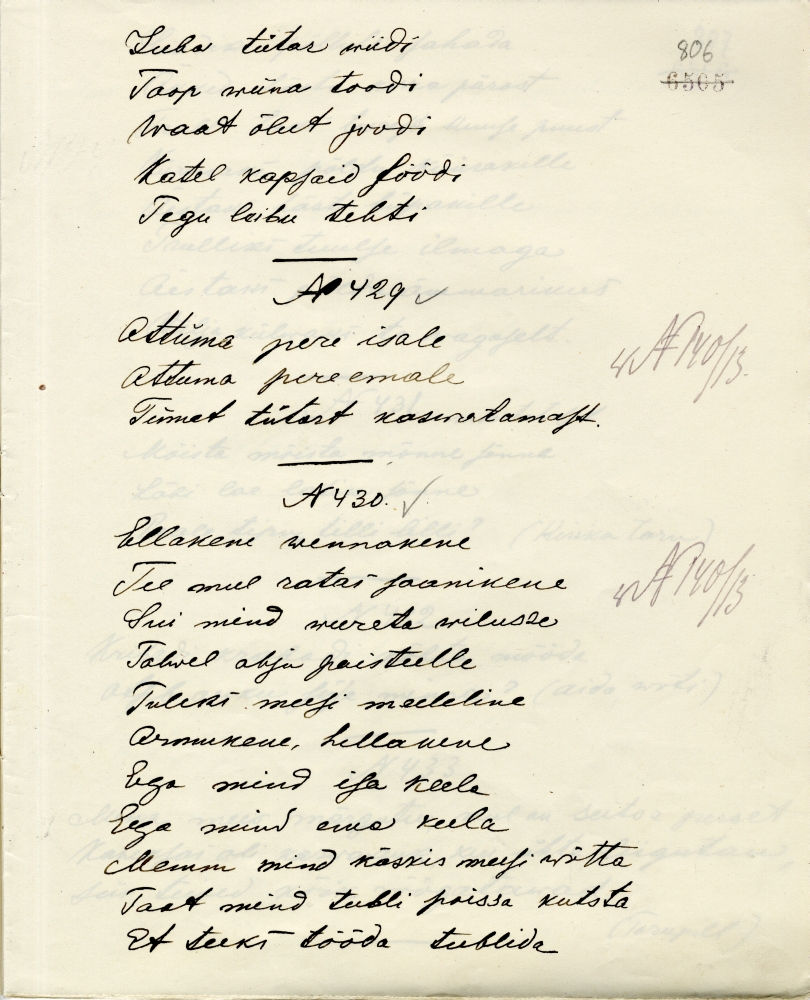 806
6505
Juba tütar wiidi
Toop wiina toodi
Waat õlut joodi
Katel kapsaid söödi
Tegu leibu tehti
№ 429
Attüma pere isale
Attuma pereemale
Tümet tütart kaswatamast.
№ 140/13.
№ 430.
Ellakene wennakene
Tee mul ratas saanikene
Sui mind weereta wilusse
Talwel ahju paisteelle
Tuleks meesi meeleline
Armukene, hellakene
Ega mind isa keela
Ega mind ema keela
Memm mind käskis meesi wõtta
Taat mind tubli poissa kutsta
Et teeks tööda tublida
№ 140/13